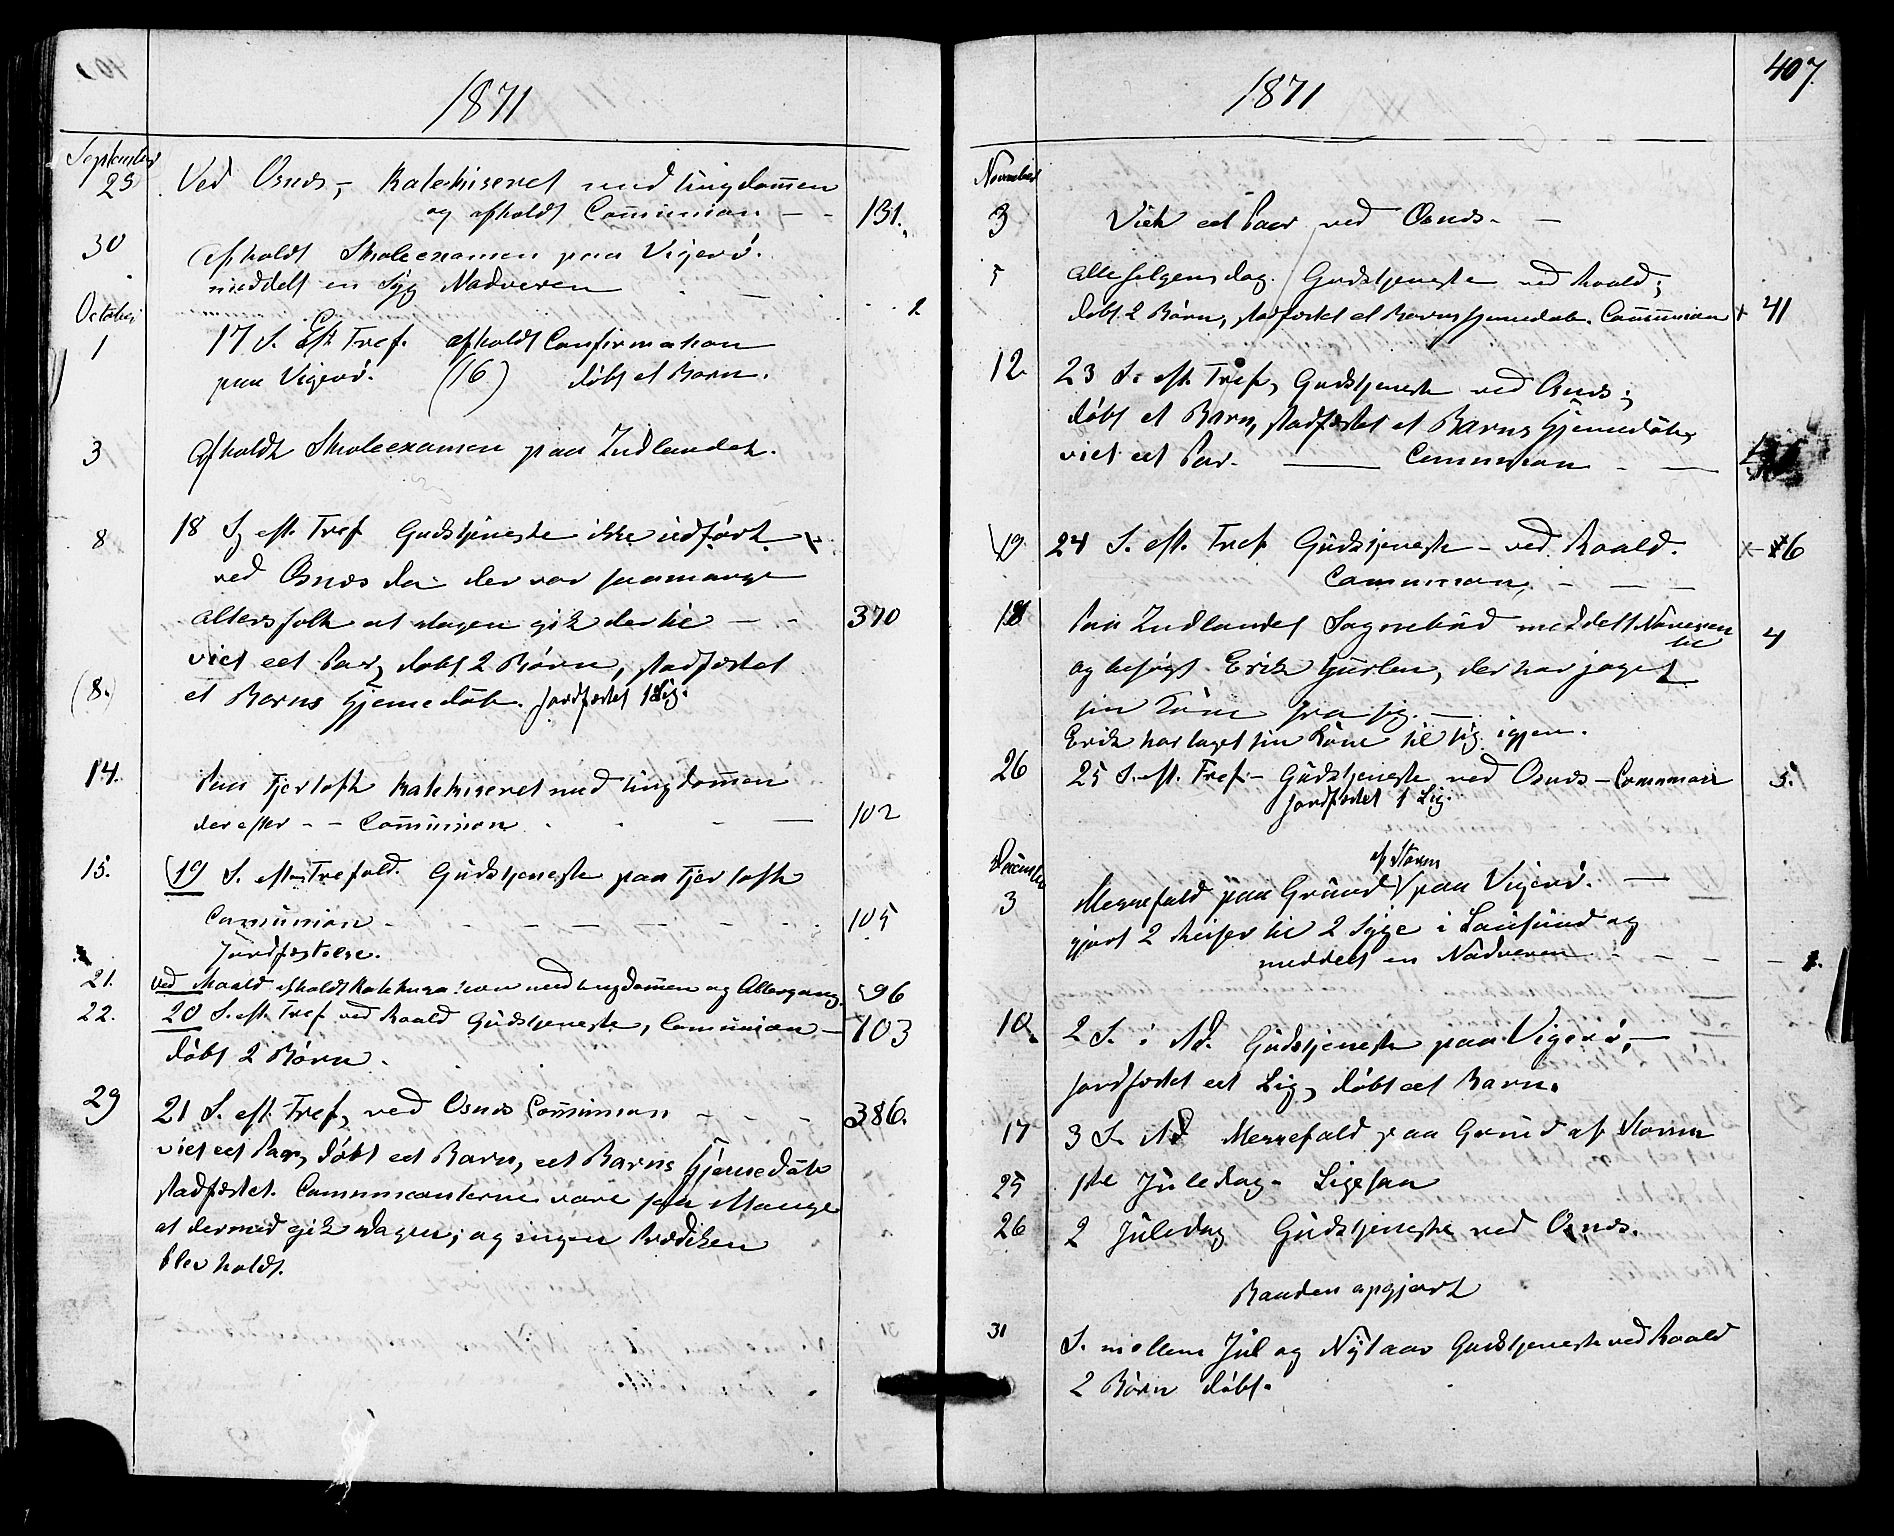 1871
September
29 Ved Osnæs, Katekiseret med Ungdommen
og afholdt Communion - - 131.
30 Afholdt Skoleexamen paa Vigerö.
meddelt en Syg Nadveren - 1
October
1 17 S. Eft Tref. afholdt Confirmation
paa Vigerö. (16) döbt et Barn.
3 Afholdt Skoleexamen paa Indlandet.
8 18 S. eft. Tref Gudstjeneste ikke udfört
ved Osnæs da der var saamange
altersfolk at dagen gik dertil - - 370
viet eet Par, döbt 2 Börn, stadfæstet
(8.) et Barns Hjemedöb. Jordfæstet 1 Lig.
14. Paa Fjertoft Katekiseret med Ungdommen
derefter - - Communion - 102
15. 19 S. efter Trefold. Gudstjeneste paa Fjertoft
Comunion - - - - 105
Jordfæstelse.
21. Ved Roald afholdt Katekisation med ungdommen og Altergang. 96
22. 20 S. eft. Tref ved Roald Gudstjeneste, Comunion - 103
döbt 2 Börn.
29 21 S. eft. Tref, ved Osnæs Communion - - - 386.
viet eet Par, döbt eet Barn, eet Barns Hjemedöb
stadfæstet. Comunicanterne vare saa Mange
at dermed gik dagen; og ingen Prædiken
blev holdt.
407.
1871
November
3 Viet eet Paar ved Osnæs - -
5 Allehelgensdag. Gudstjeneste ved Roald;
döbt 2 Börn, stadfæstet et Barns hjemedöb. Communion + 41
12 23 S. eft. Tref, Gudstjeneste ved Osnæs;
döbt et Barn, stadfæstet et Barns Hjemedöb,
viet eet Par. - Communion - -
19 24 S. eft. Tref Gudstjeneste - ved Roald. x - 6
Communion, - - -
18 Paa Indlandet Sognebud meddelt Naveren
til 4
og besögt Erik, der har jaget
sin Kone fra sig. -
Erik har taget sin Kone til sig igjen.
26 25 S. eft. Tref. - Gudstjeneste ved Osnæs - Communion 5.
Jordfæstet 1 Lig.
December
af Storm
3 Messefald paa Grund V paa Vigerö. -
gjort 2 Reiser til 2 Syge i og
meddelt en Nadveren - - - - 1.
10 2 S. i Ad. Gudstjeneste paa Vigerö, -
jordfæstet eet Lig, döbt eet Barn.
17 3 S. Ad Messefald paa Grund af Storm
25 1ste Juledag - Ligesaa
26 2 Juledag Gudstjeneste ved Osnæs.
opgjort
31 S. mellem Jul og Nytaar Gudstjeneste ved Roald
2 Börn döbt.